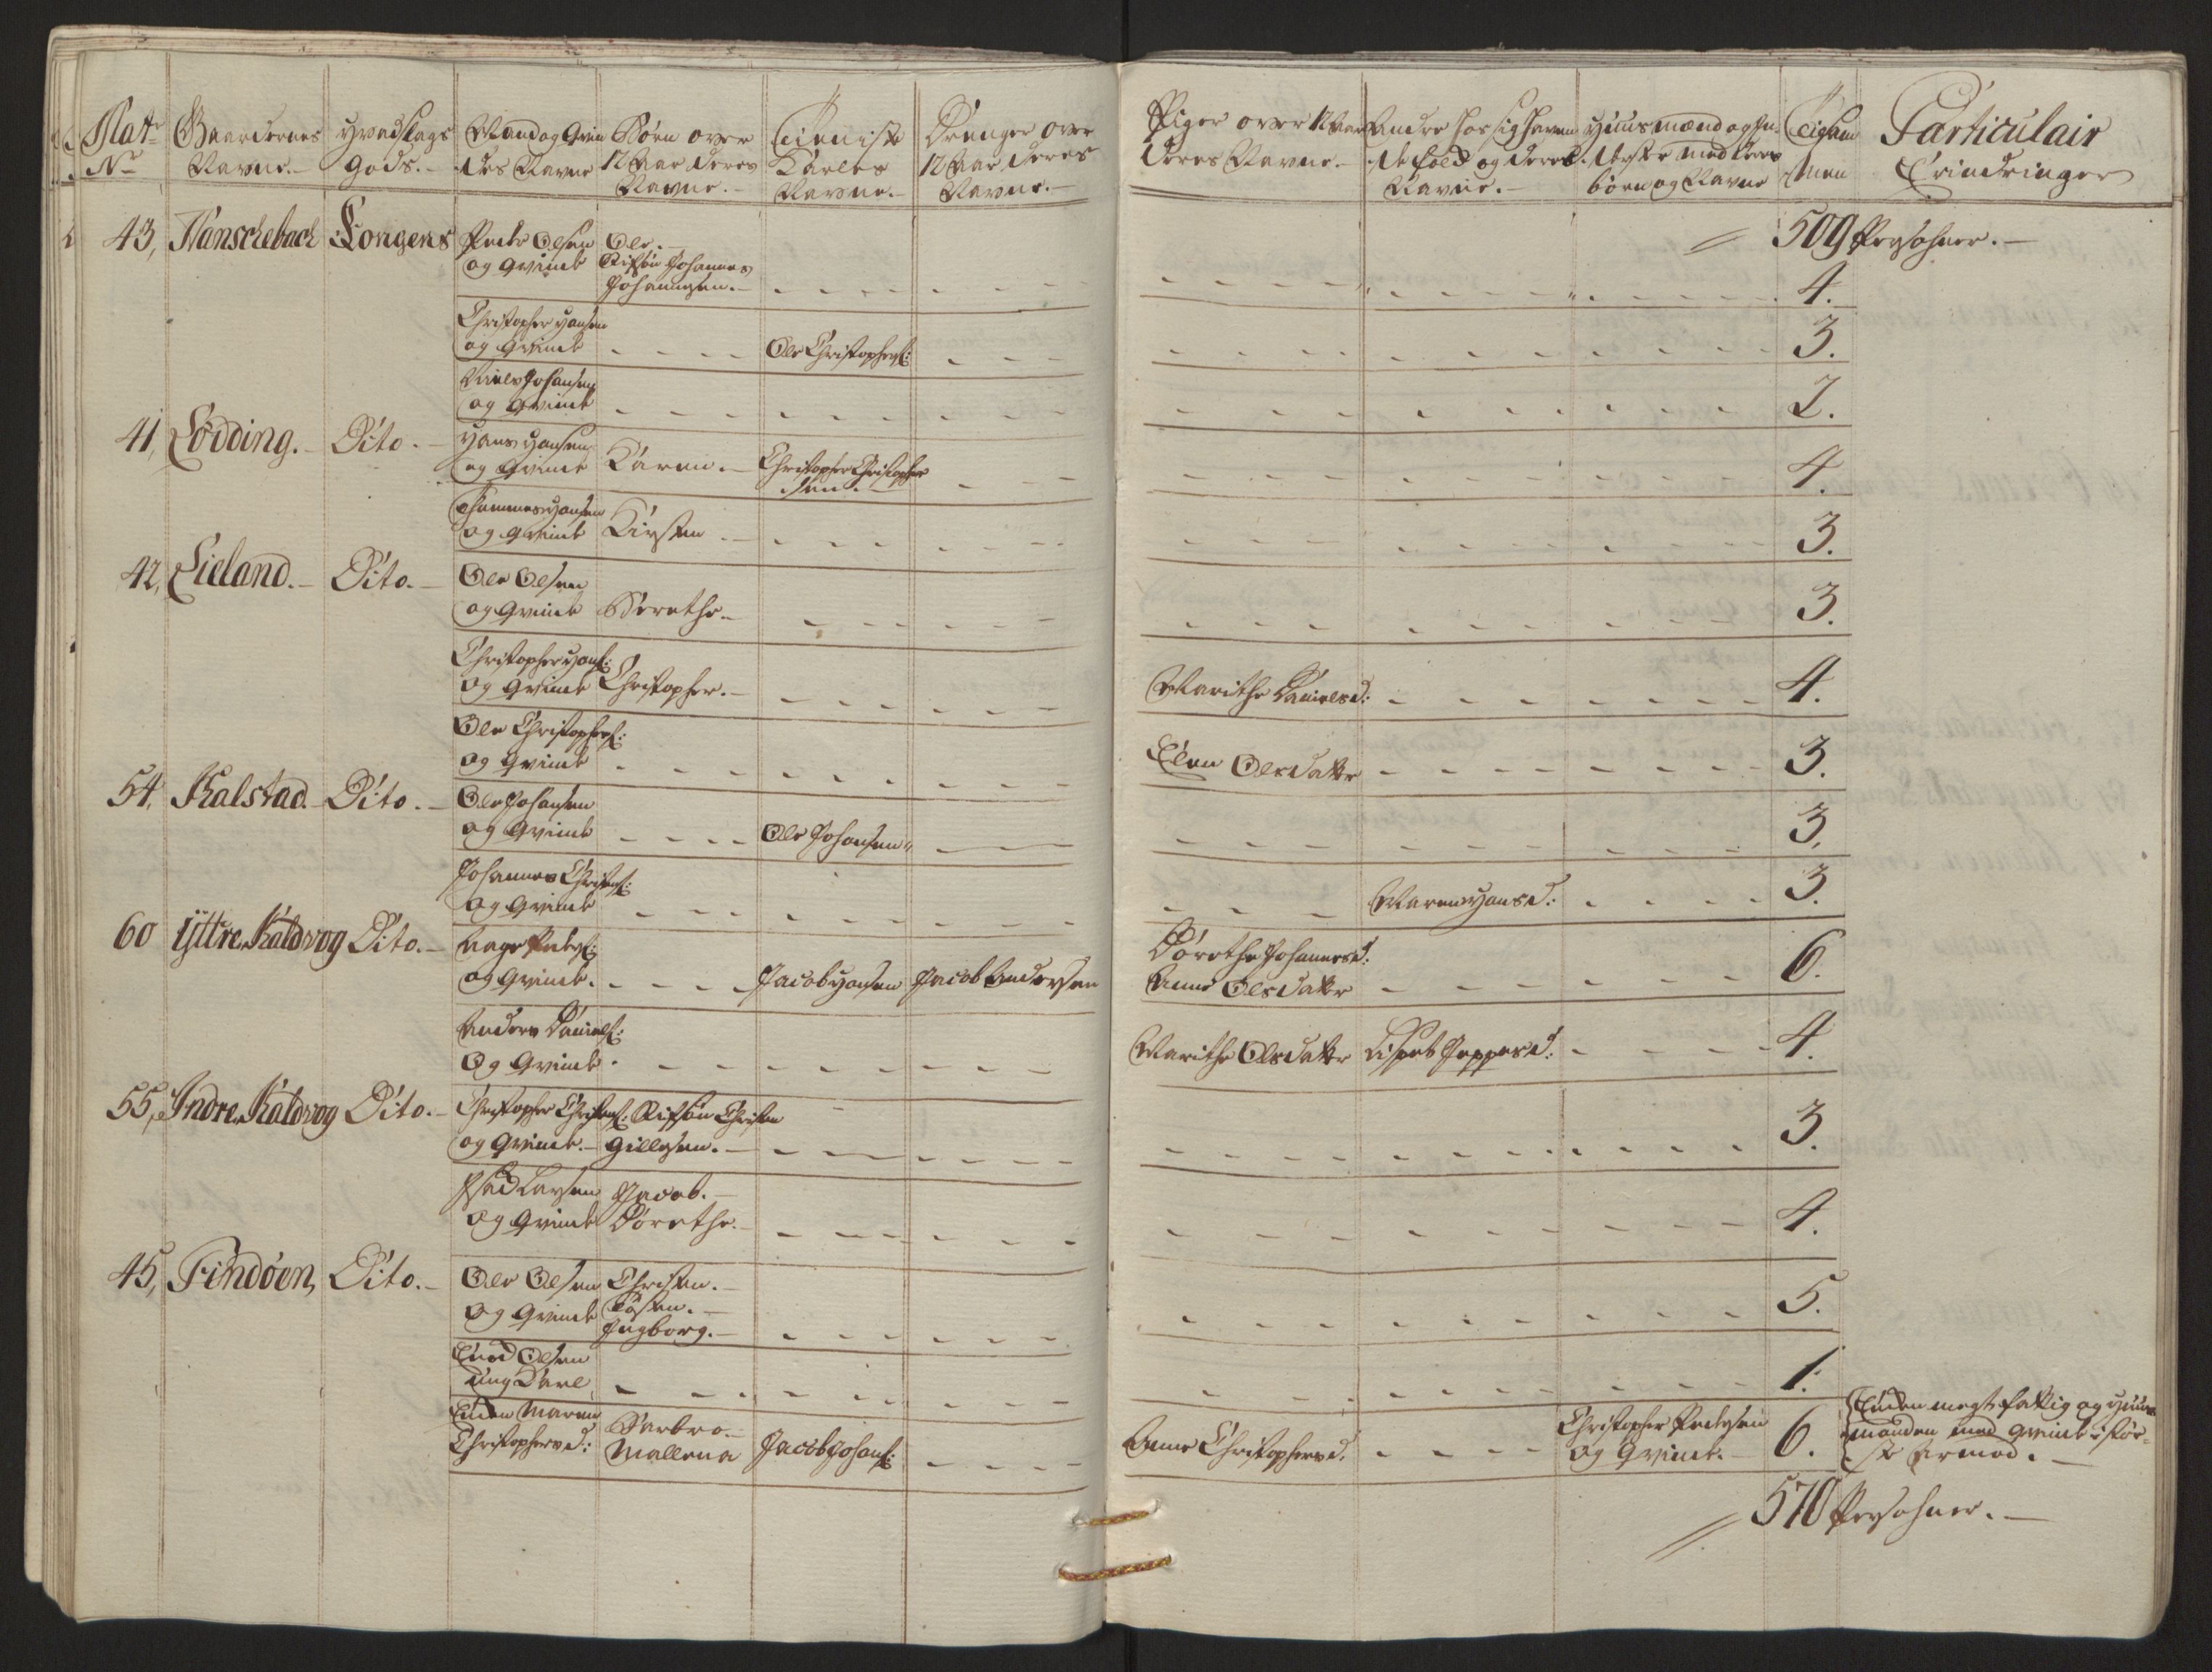 Matr Nr
Gaardernes Navne.
Hvadslags Gods.
Mand og Qvindes Navne
Børn over 12 Aar deres Navne.
Tieniste Karles Navne.
Drenger over 12 Aar deres Navne.
Piger over 12 Aar deres Navne.
Andre hos sig haven de hold og deres Navne.
Huusmænd og In derster med deres børn og Navne
Tilsam men
Particulair Erindringer
509 Persohner.
43, Hanschebach Kongens Peder Olsen og Qvinde Ole. Stifsøn Johannes Johannesen. 4.
Christopher Hansen og Qvinde Ole Christophers: 3.
Niels Johansen og Qvinde 2.
41, Lødding. Dito. Hans Hansen og Qvinde Karen. Christopher Christophersen. 4.
Thommes Hansen og Qvinde Kirsten 3.
42, Lieland. Dito. Ole Olsen og Qvinde Berethe 3.
Christopher Hans: og Qvinde Christopher. Marithe Danielsd: 4.
Ole Christophers: og Qvinde Elen Olsdatter 3.
54, Kalstad. Dito. Ole Johansen og Qvinde Ole Johansen 3.
Johannes Christens: og Qvinde Maren Hansd: 3.
60 Yttre Kaldvog Dito. Aage Peders: og Qvinde. Jacob Hansen Jacob Andersen Dorethe Johannesd: Anne Olsdatter 6.
Anders Daniels: Og Qvinde. Marithe Olsdatter Lisbet Jeppesd: 4.
55, Indre Kaldvog Dito. Christopher Christens: og Qvinde. Stifsøn Christen Gillesen. 3.
Larsen og Qvinde Jacob. Dorethe. 4.
45, Findøen, Dito. Ole Olsen og Qvinde Christen. Ingborg. 5.
Knud Olsen ung Karl 1.
Enken Maren Christophersd: Barbro. Mallena Jacob Johans: Anne Christophersd. Christopher Pedersen og Qvinde. 6. Enken megt fattig og Huusmanden med Qvinde i største Armod.
570 Persohner.